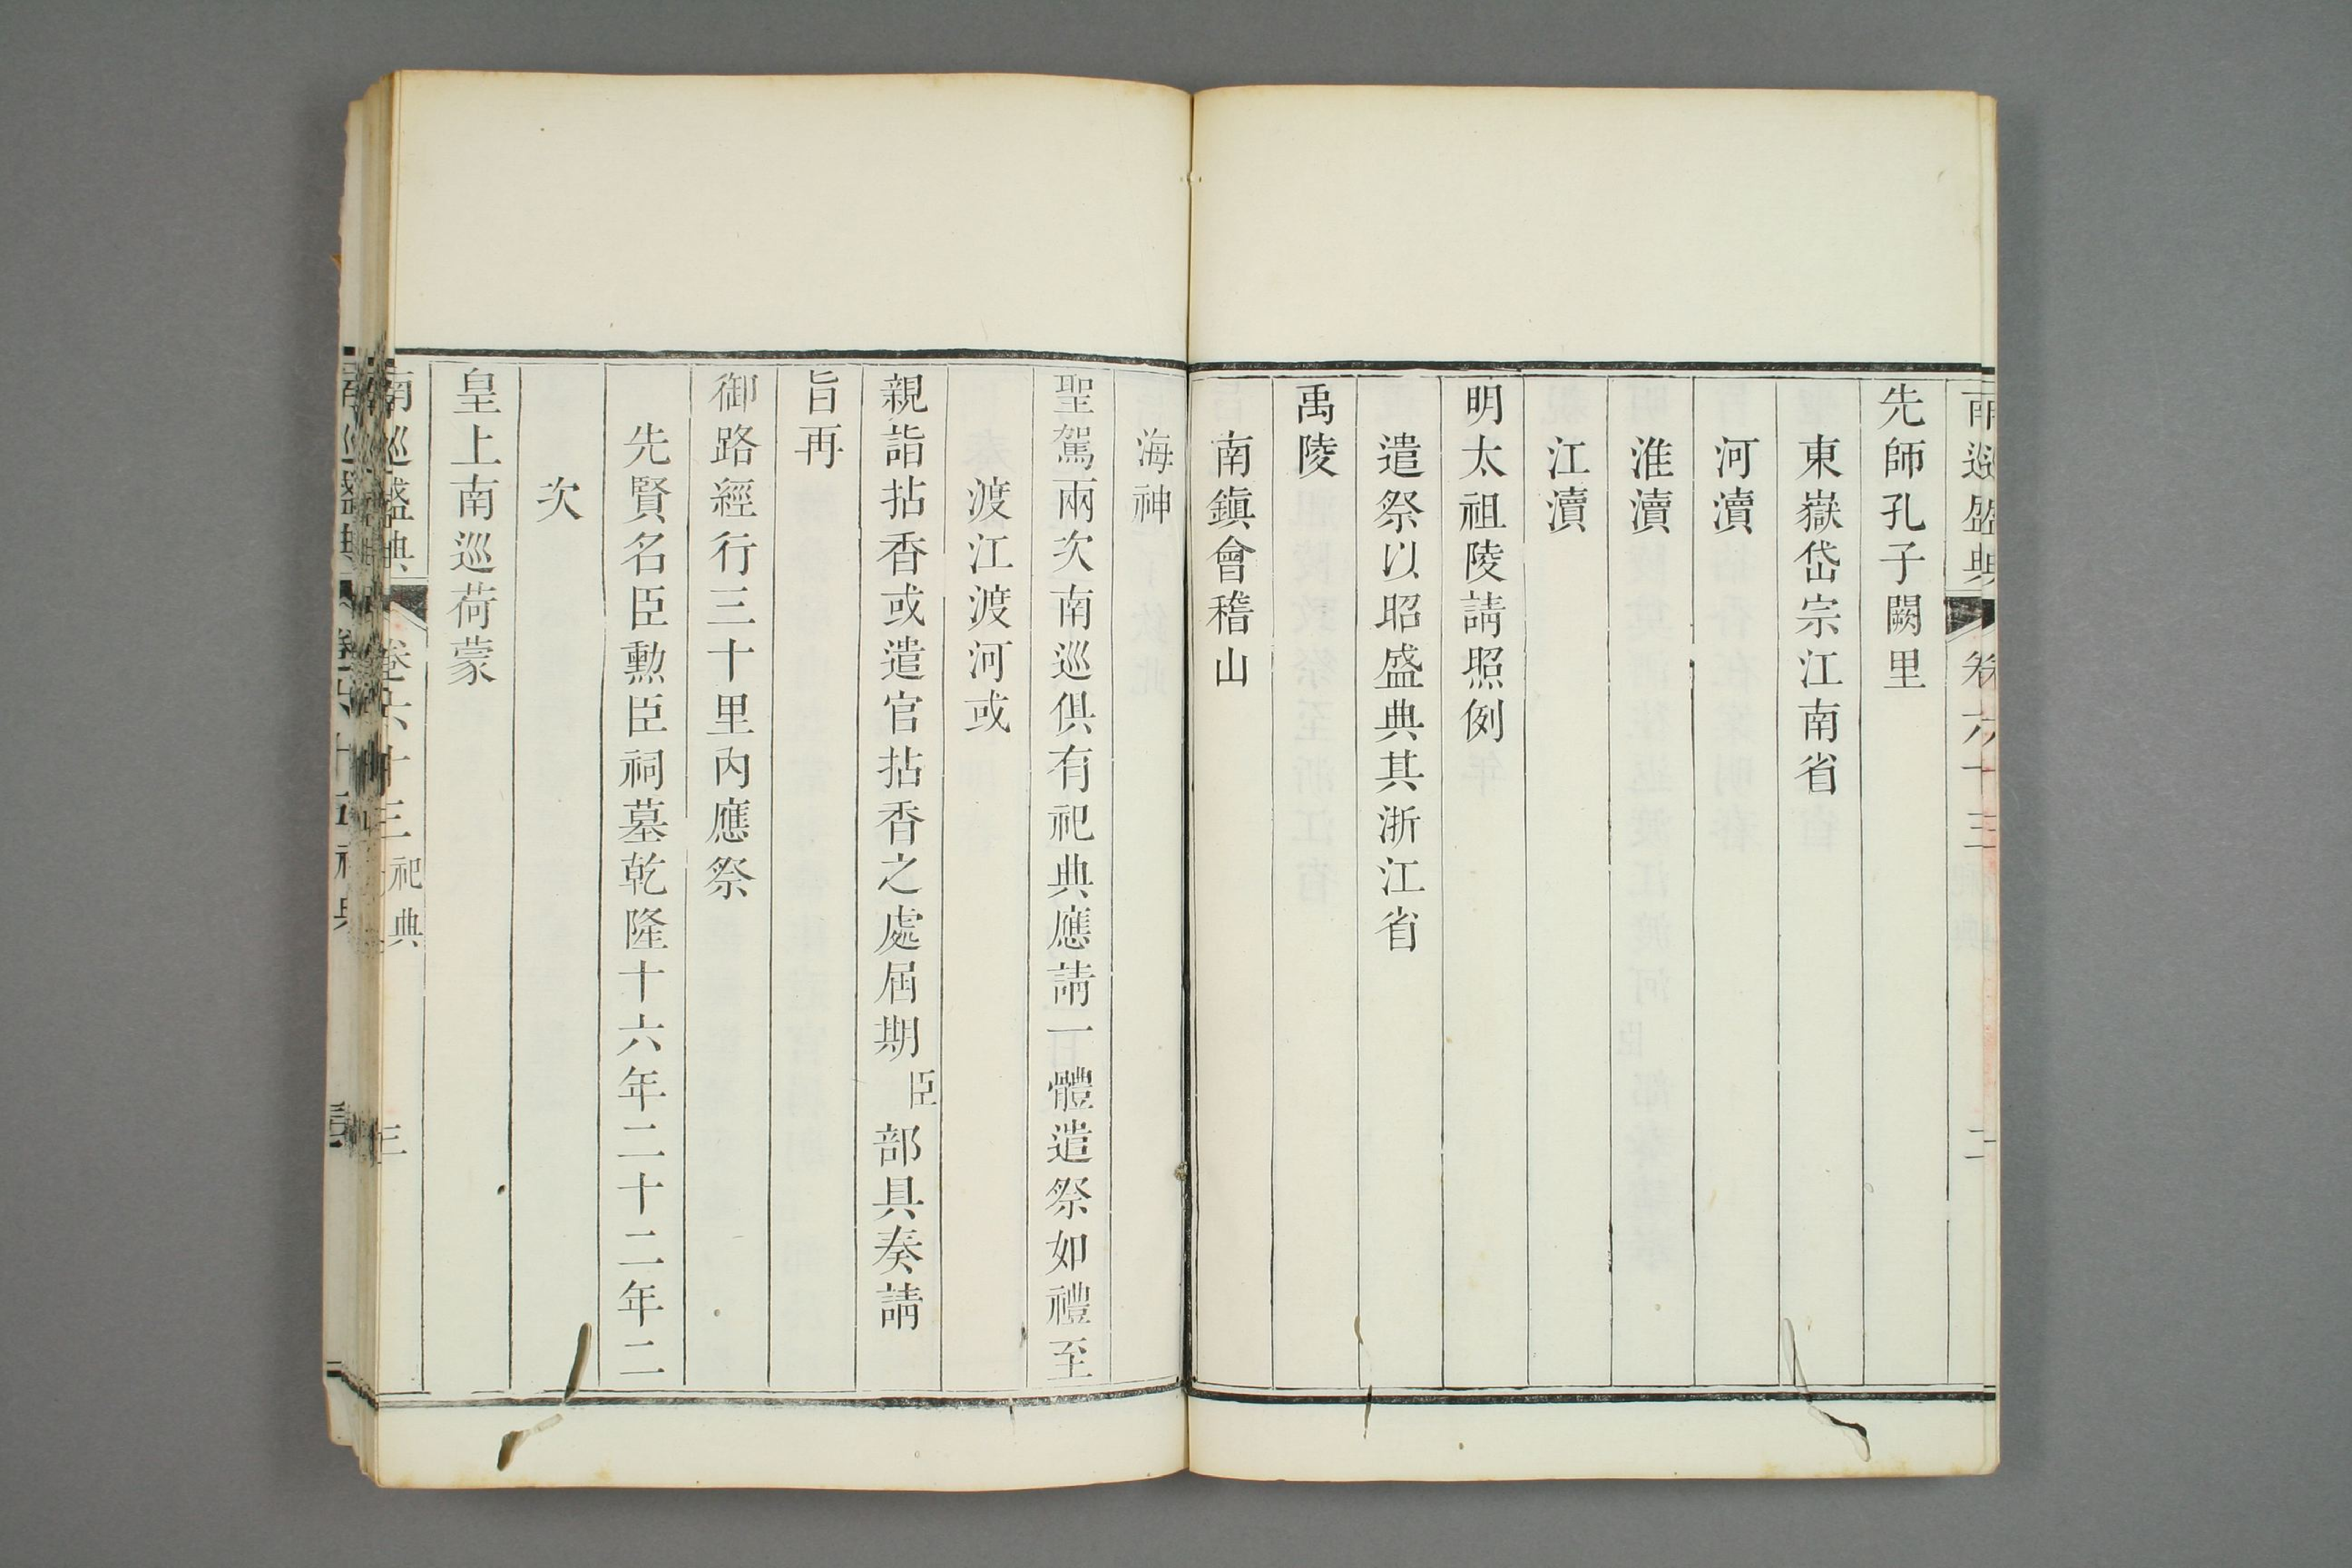 南巡盛典 卷六十三 二
先師孔子闕里
東嶽岱宗江南省
河瀆
淮瀆
江瀆
明太祖陵請照例
遣祭以昭盛典其浙江省
禹陵
南鎮會稽山
海神
聖駕兩次南巡俱有祀典應請一體遣祭如禮至
渡江渡河或
親詣拈香或遣官拈香之處屆期臣部具奏請
旨再
御路經行三十里內應祭
先賢名臣勲臣祠墓乾隆十六年二十二年二
次
皇上南巡荷蒙
南巡盛典 卷六十三 祀典 三